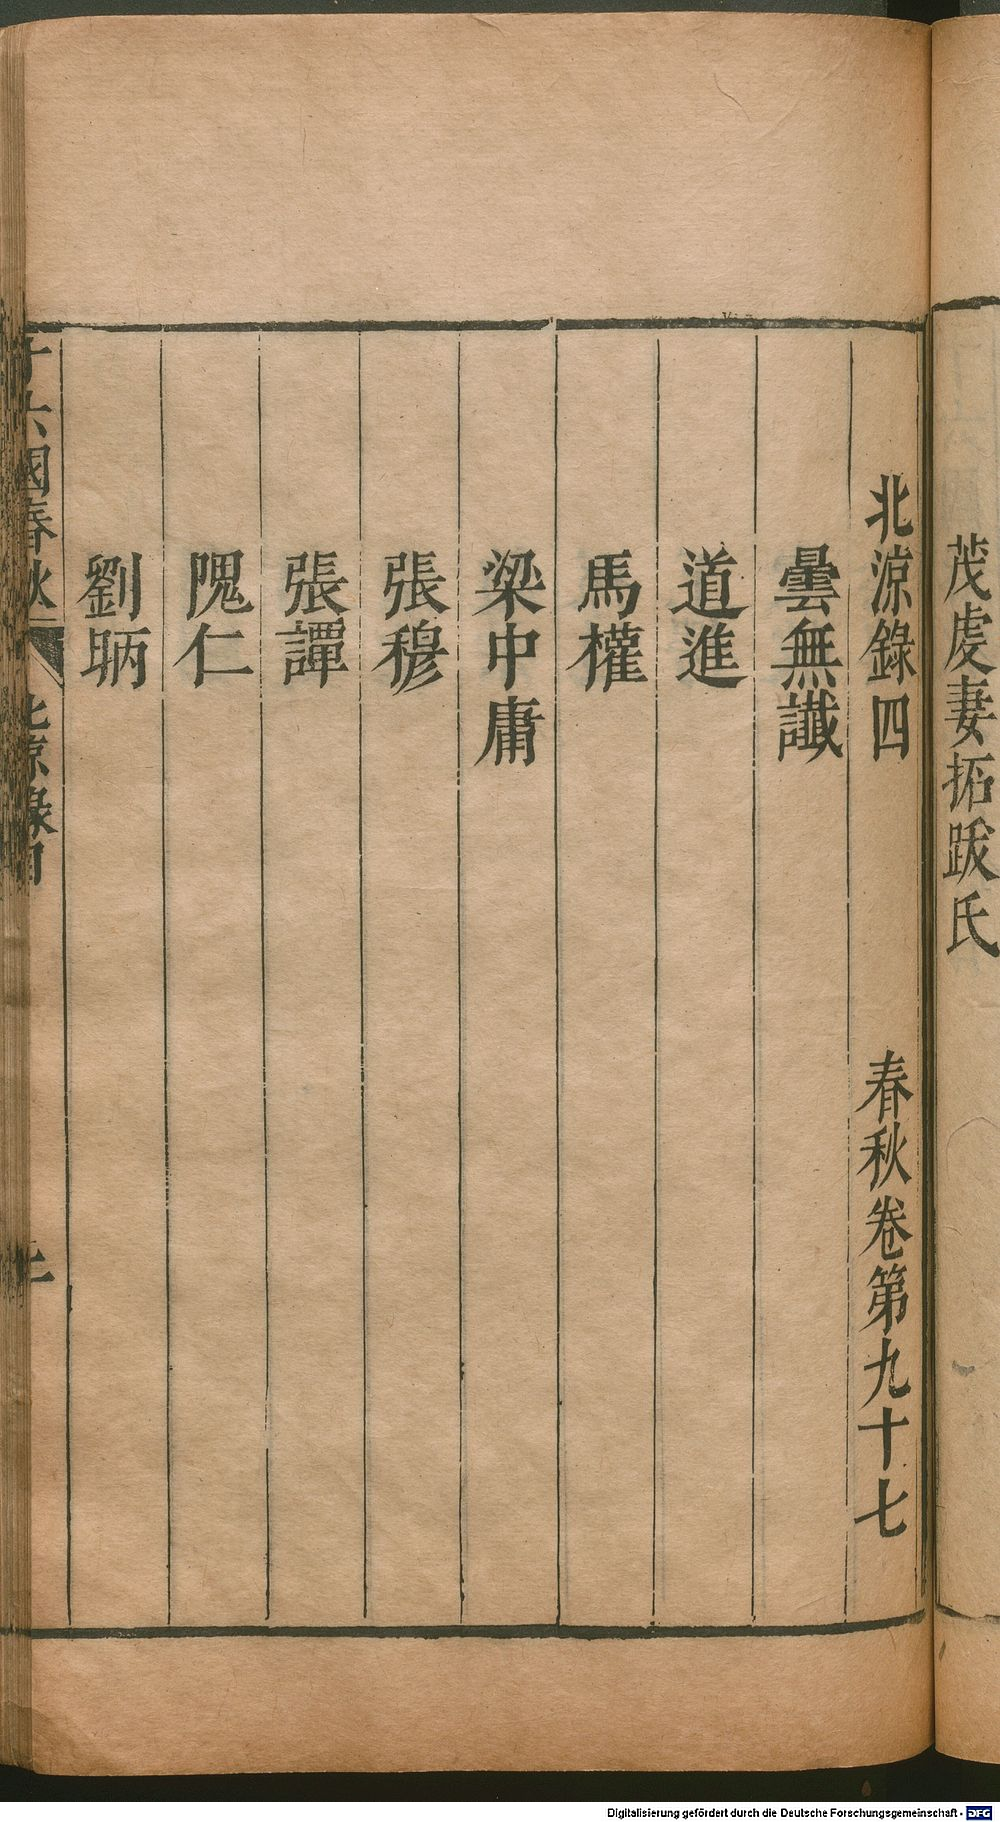 茂虔妻拓跋氏
北涼錄四 春秋卷第九十七
曇無讖
道進
馬權
梁中庸
張穆
張譚
隗仁
劉昞
十六國春秋 北涼錄目
Digitalisierung gefördert durch die Deutsche Forschungsgemeinschaft - DFG